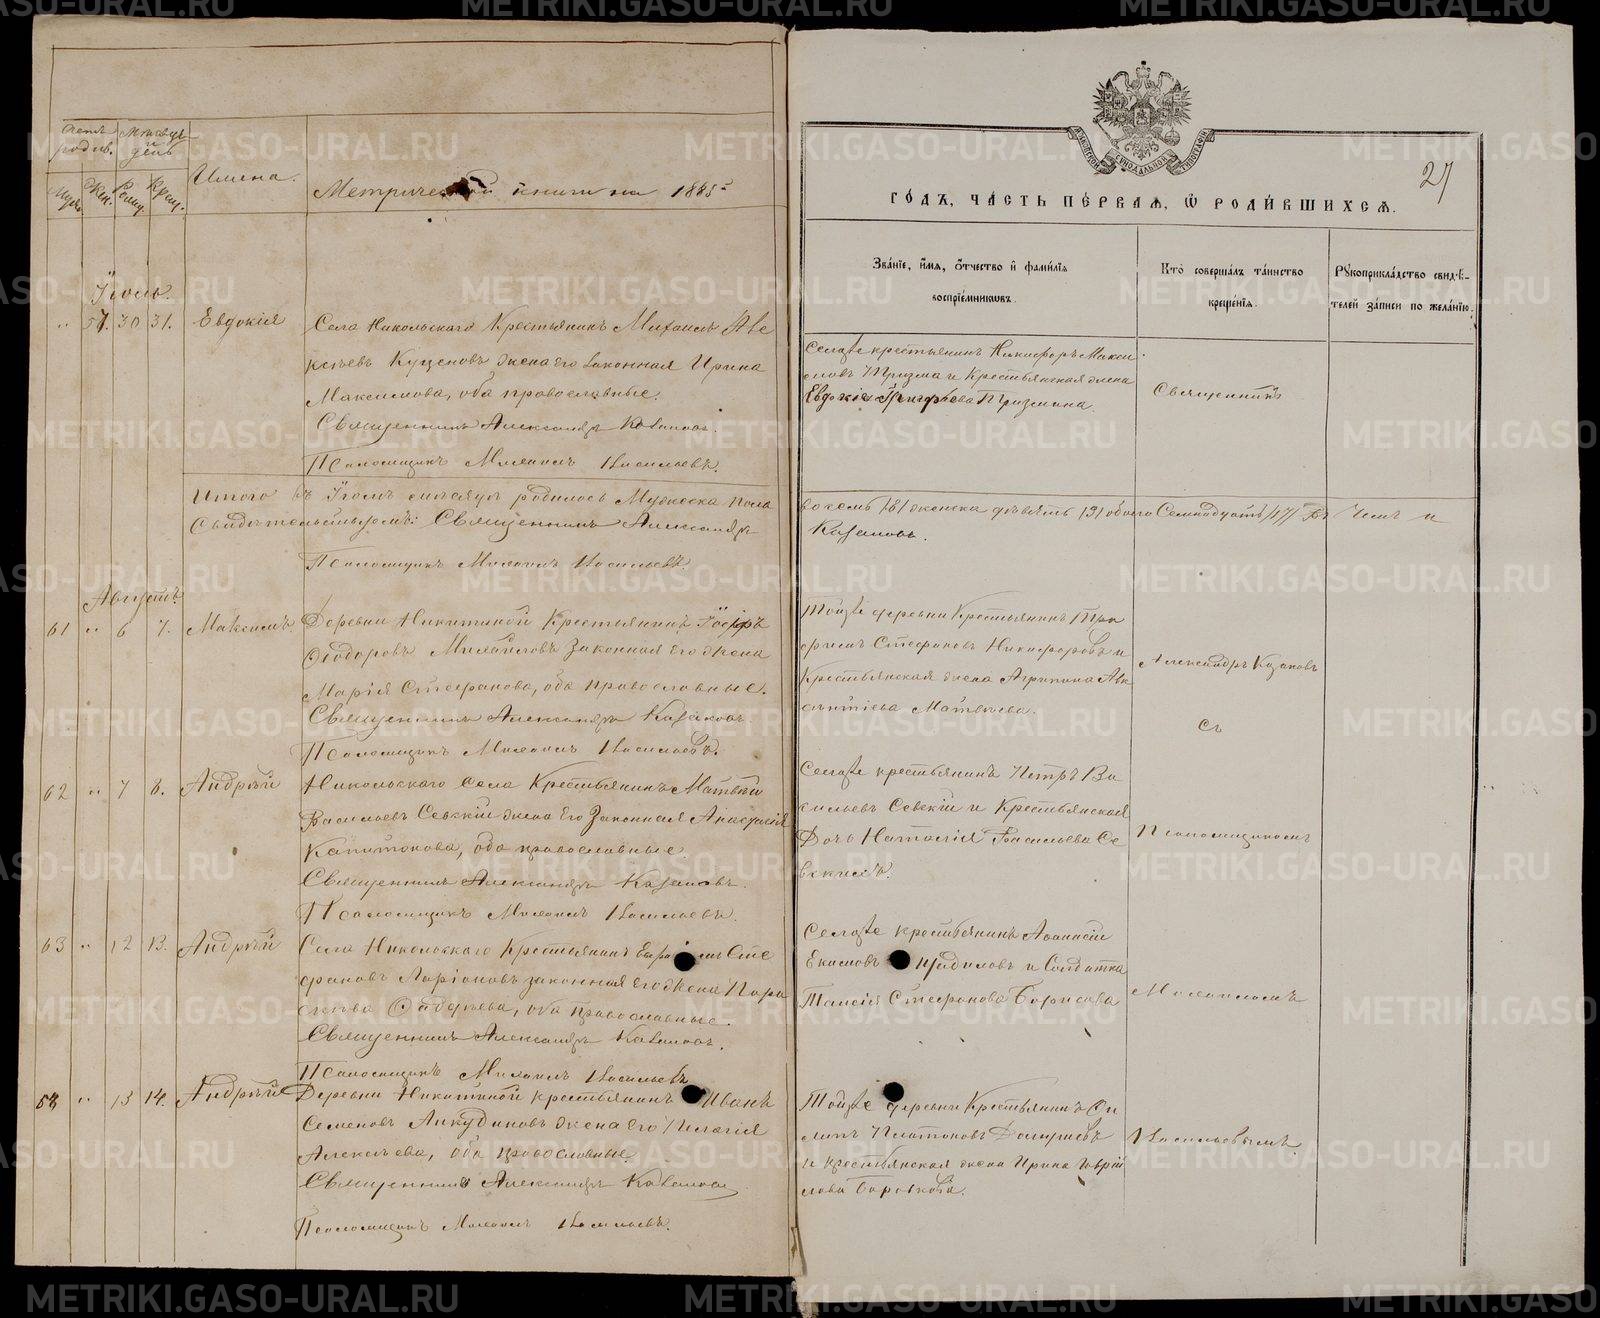 Счетъ родив.
Мѣсяцъ и день
Имена.
Муж. Жен. Рожд. Крещ.
Метрической книги на 1885й
Іюль.
„ 57. 30 31. Евдокія
Села Никольскаго Крестьянинъ Михаилъ Але
ксѣевъ Куценовъ жена его законная Ирина
Максимова, оба православные.
Священникъ Александръ Казаковъ.
Псаломщикъ Михаилъ Васильевъ.
Итого въ Іюлѣ мѣсяцѣ родилось Мужеска пола
Свидѣтельствуемъ: Священникъ Александръ
Псаломщикъ Михаилъ Васильевъ.
Августъ.
61 „ 6 7. Максимъ
Деревни Никитиной Крестьянинъ Іосифъ
Ѳеодоровъ Михайловъ законная его жена
Марія Стефанова, оба православные.
Священникъ Александръ Казаковъ.
Псаломщикъ Михаилъ Васильевъ.
62 „ 7 8. Андрей
Никольскаго Села Крестьянинъ Матвѣй
Васильевъ Севскій жена его законная Анастасія
Капитонова, оба православные.
Священникъ Александръ Казаковъ.
Псаломщикъ Михаилъ Васильевъ.
63 „ 12 13. Андрей
Села Никольскаго Крестьянинъ Сте
фановъ Ларіоновъ законная его жена Пара
скева, оба православные.
Священникъ Александръ Казаковъ.
Псаломщикъ Михаилъ Васильевъ
„ 13 14. Андрей
Деревни Никитиной крестьянинъ Иванъ
Семеновъ Анкудиновъ жена его Пелагія
Алексѣева, оба православные.
Священникъ Александръ Казаковъ
Псаломщикъ Михаилъ Васильевъ.
27
го́дъ, ча́сть пе́рваѧ, ѡ҆ роди́вшихсѧ.
Зва́нїе, и҆́мѧ, ѻ҆́тчество и҆ фами́лїѧ
воспрїе́мниковъ.
Кто̀ соверша́лъ та́инство
креще́нїѧ.
Рꙋкоприкла́дство свидѣ́-
телей за́писи по жела́нїю.
Селаже крестьянинъ Никифоръ Макси
мовъ Призма и Крестьянская жена
Евдокія Григорьева Призмина.
Священникъ
восемь /8/ женска девять /9/ обоего Семнадцать /17/ Въ чемъ и
Казаковъ.
Тойже деревни Крестьянинъ Тро
фимъ Стефановъ Никифоровъ и
Крестьянская жена Агрипина Авк
сентіева Матвѣева.
Александръ Казаковъ
съ
Селаже крестьянинъ Петръ Ва
сильевъ Севскій и Крестьянская
Дочь Наталія Васильева Се
вскихъ.
Псаломщикомъ
Селаже крестьянинъ Аѳанасій
Екимовъ и Солдатка
Таисія Стефанова Борисова
Михаиломъ
Тойже деревни Крестьянинъ
Платоновъ
и крестьянская жена Ирина Гаврій
лова Боровкова.
Васильевымъ
METRIKI.GASO-URAL.RU